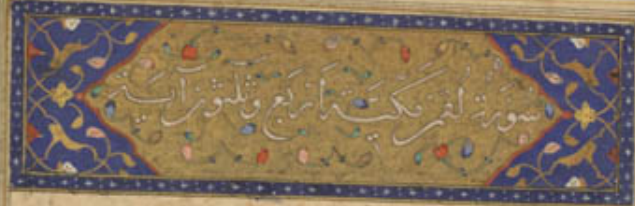 سورة لقمن مكية اربع وثلثون آية